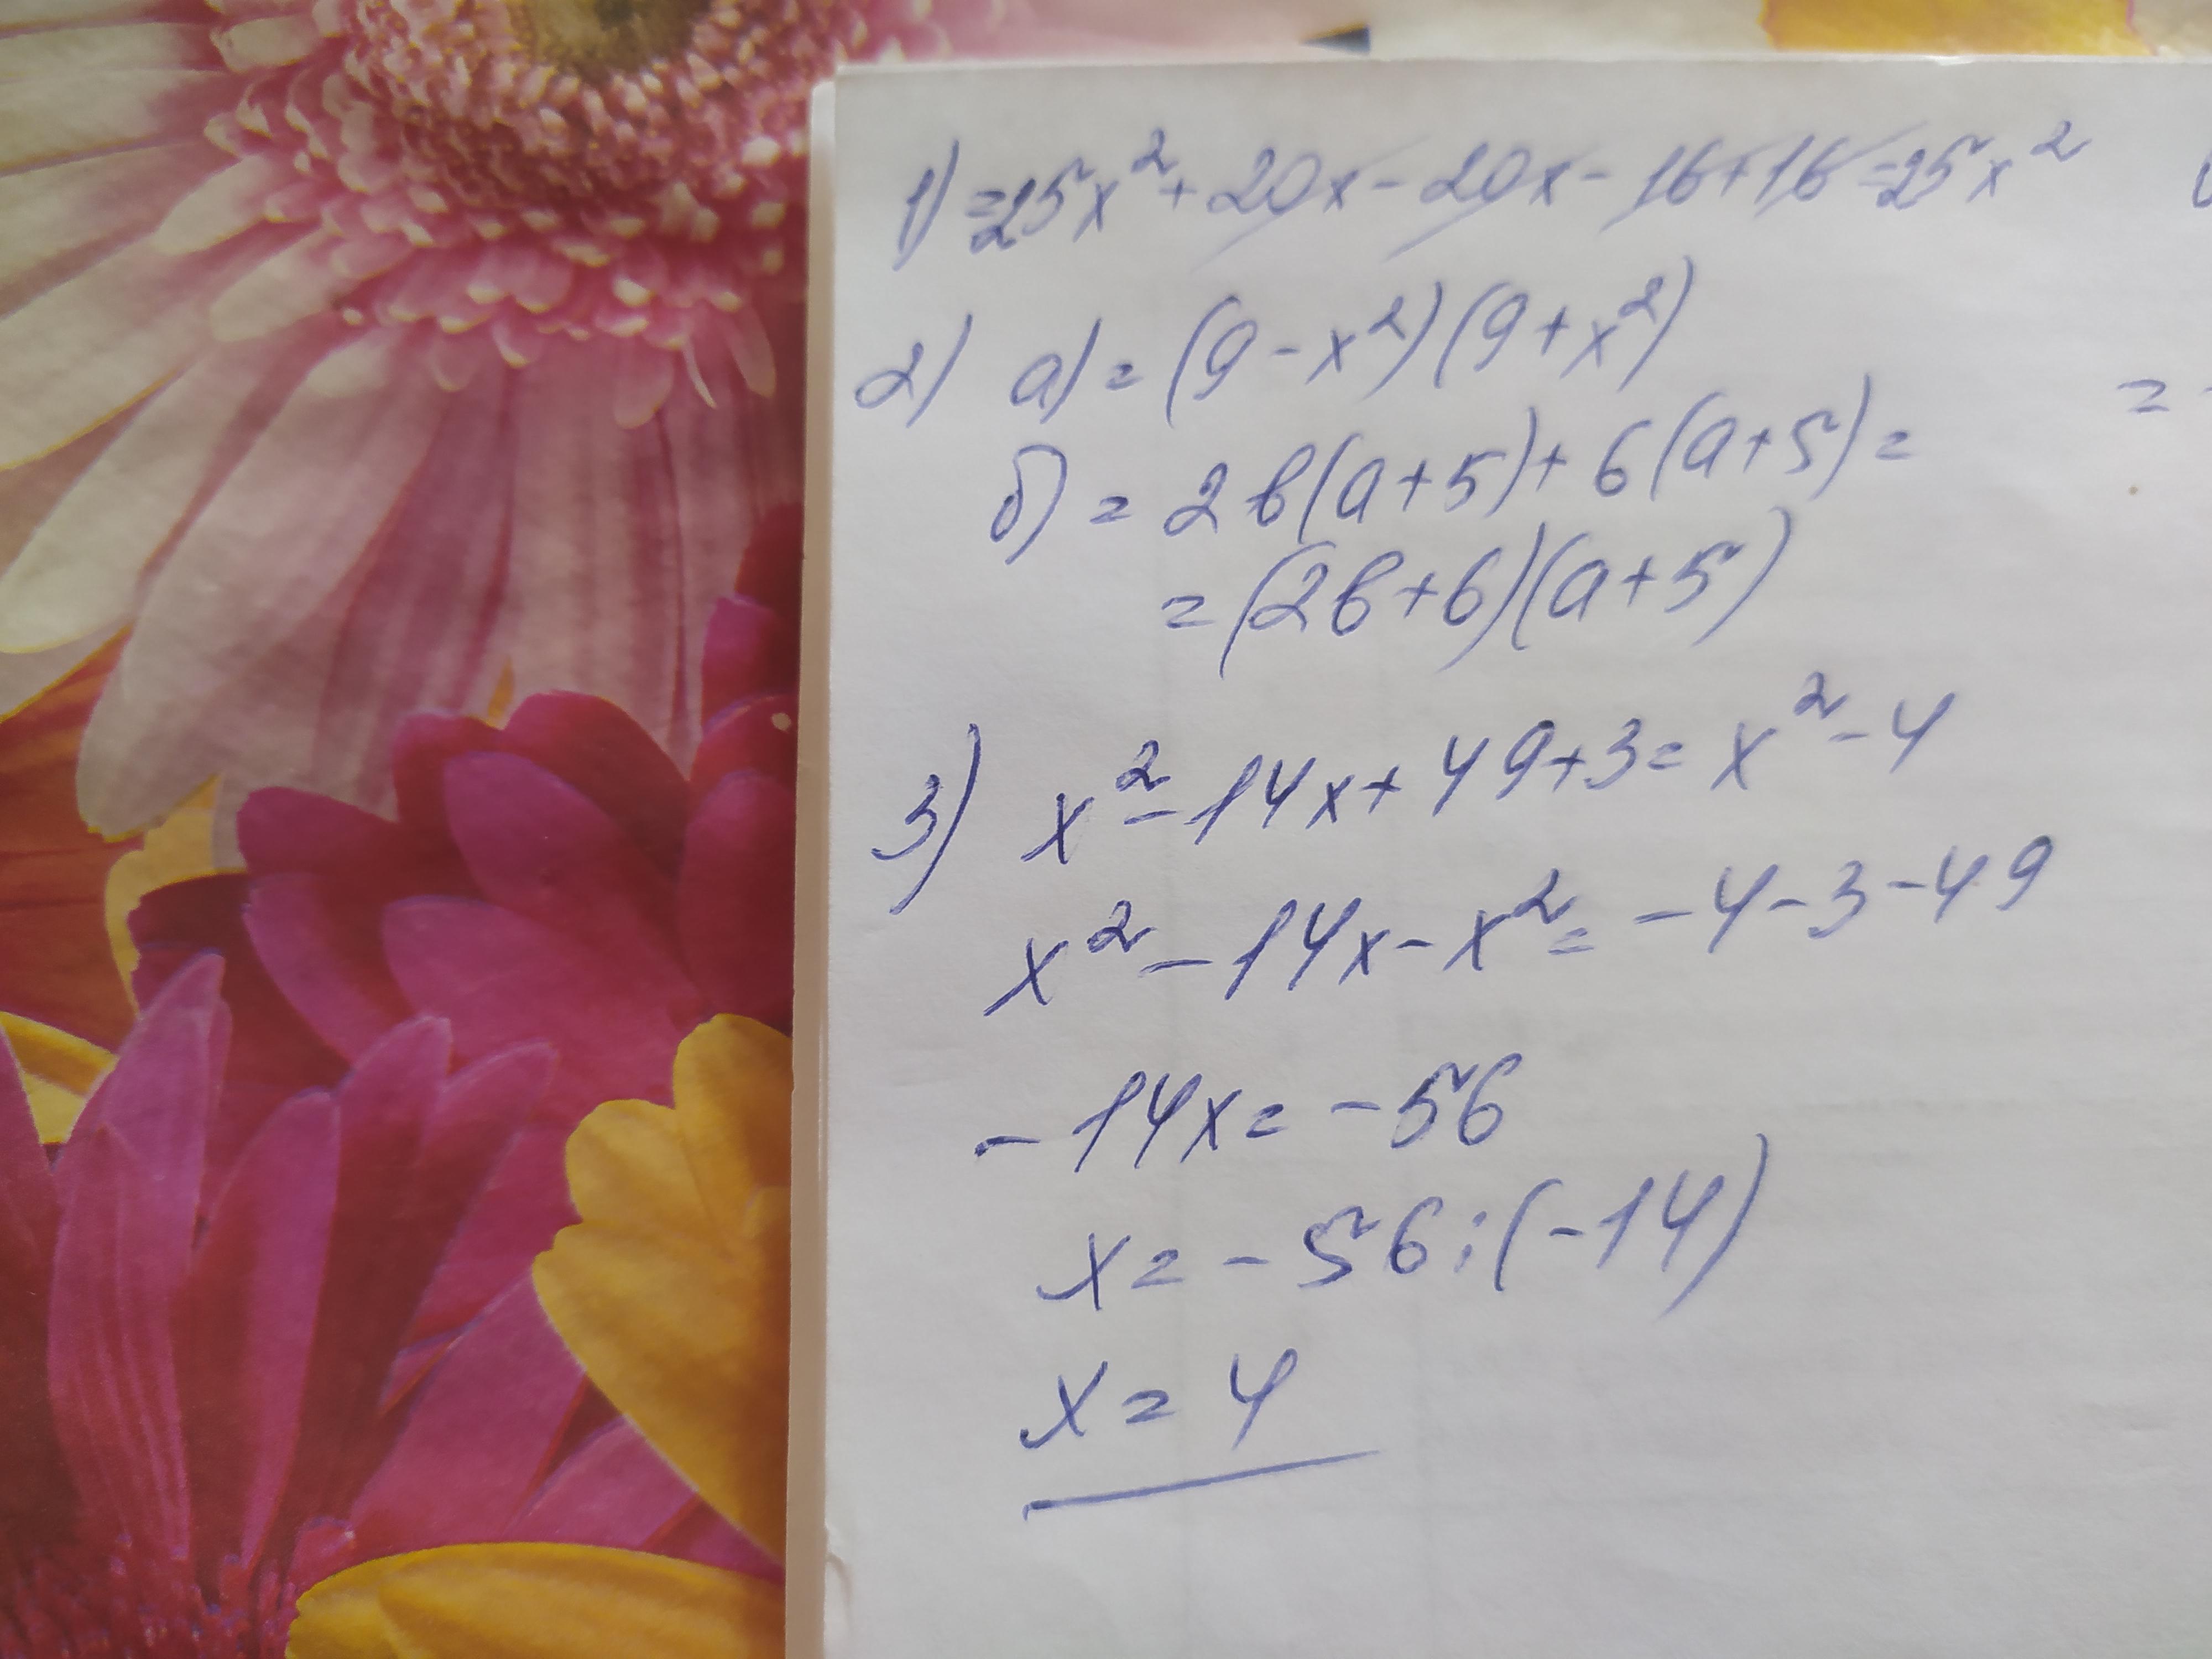 1) =25x²+20x-20x-16+16=25x²
2) а) = (9-x²)(9+x²)
б) = 2b(a+5)+6(a+5)=
=(2b+6)(a+5)
=
3) x²-14x+49+3=x²-4
x²-14x-x²=-4-3-49
-14x=-56
x=-56:(-14)
x=4